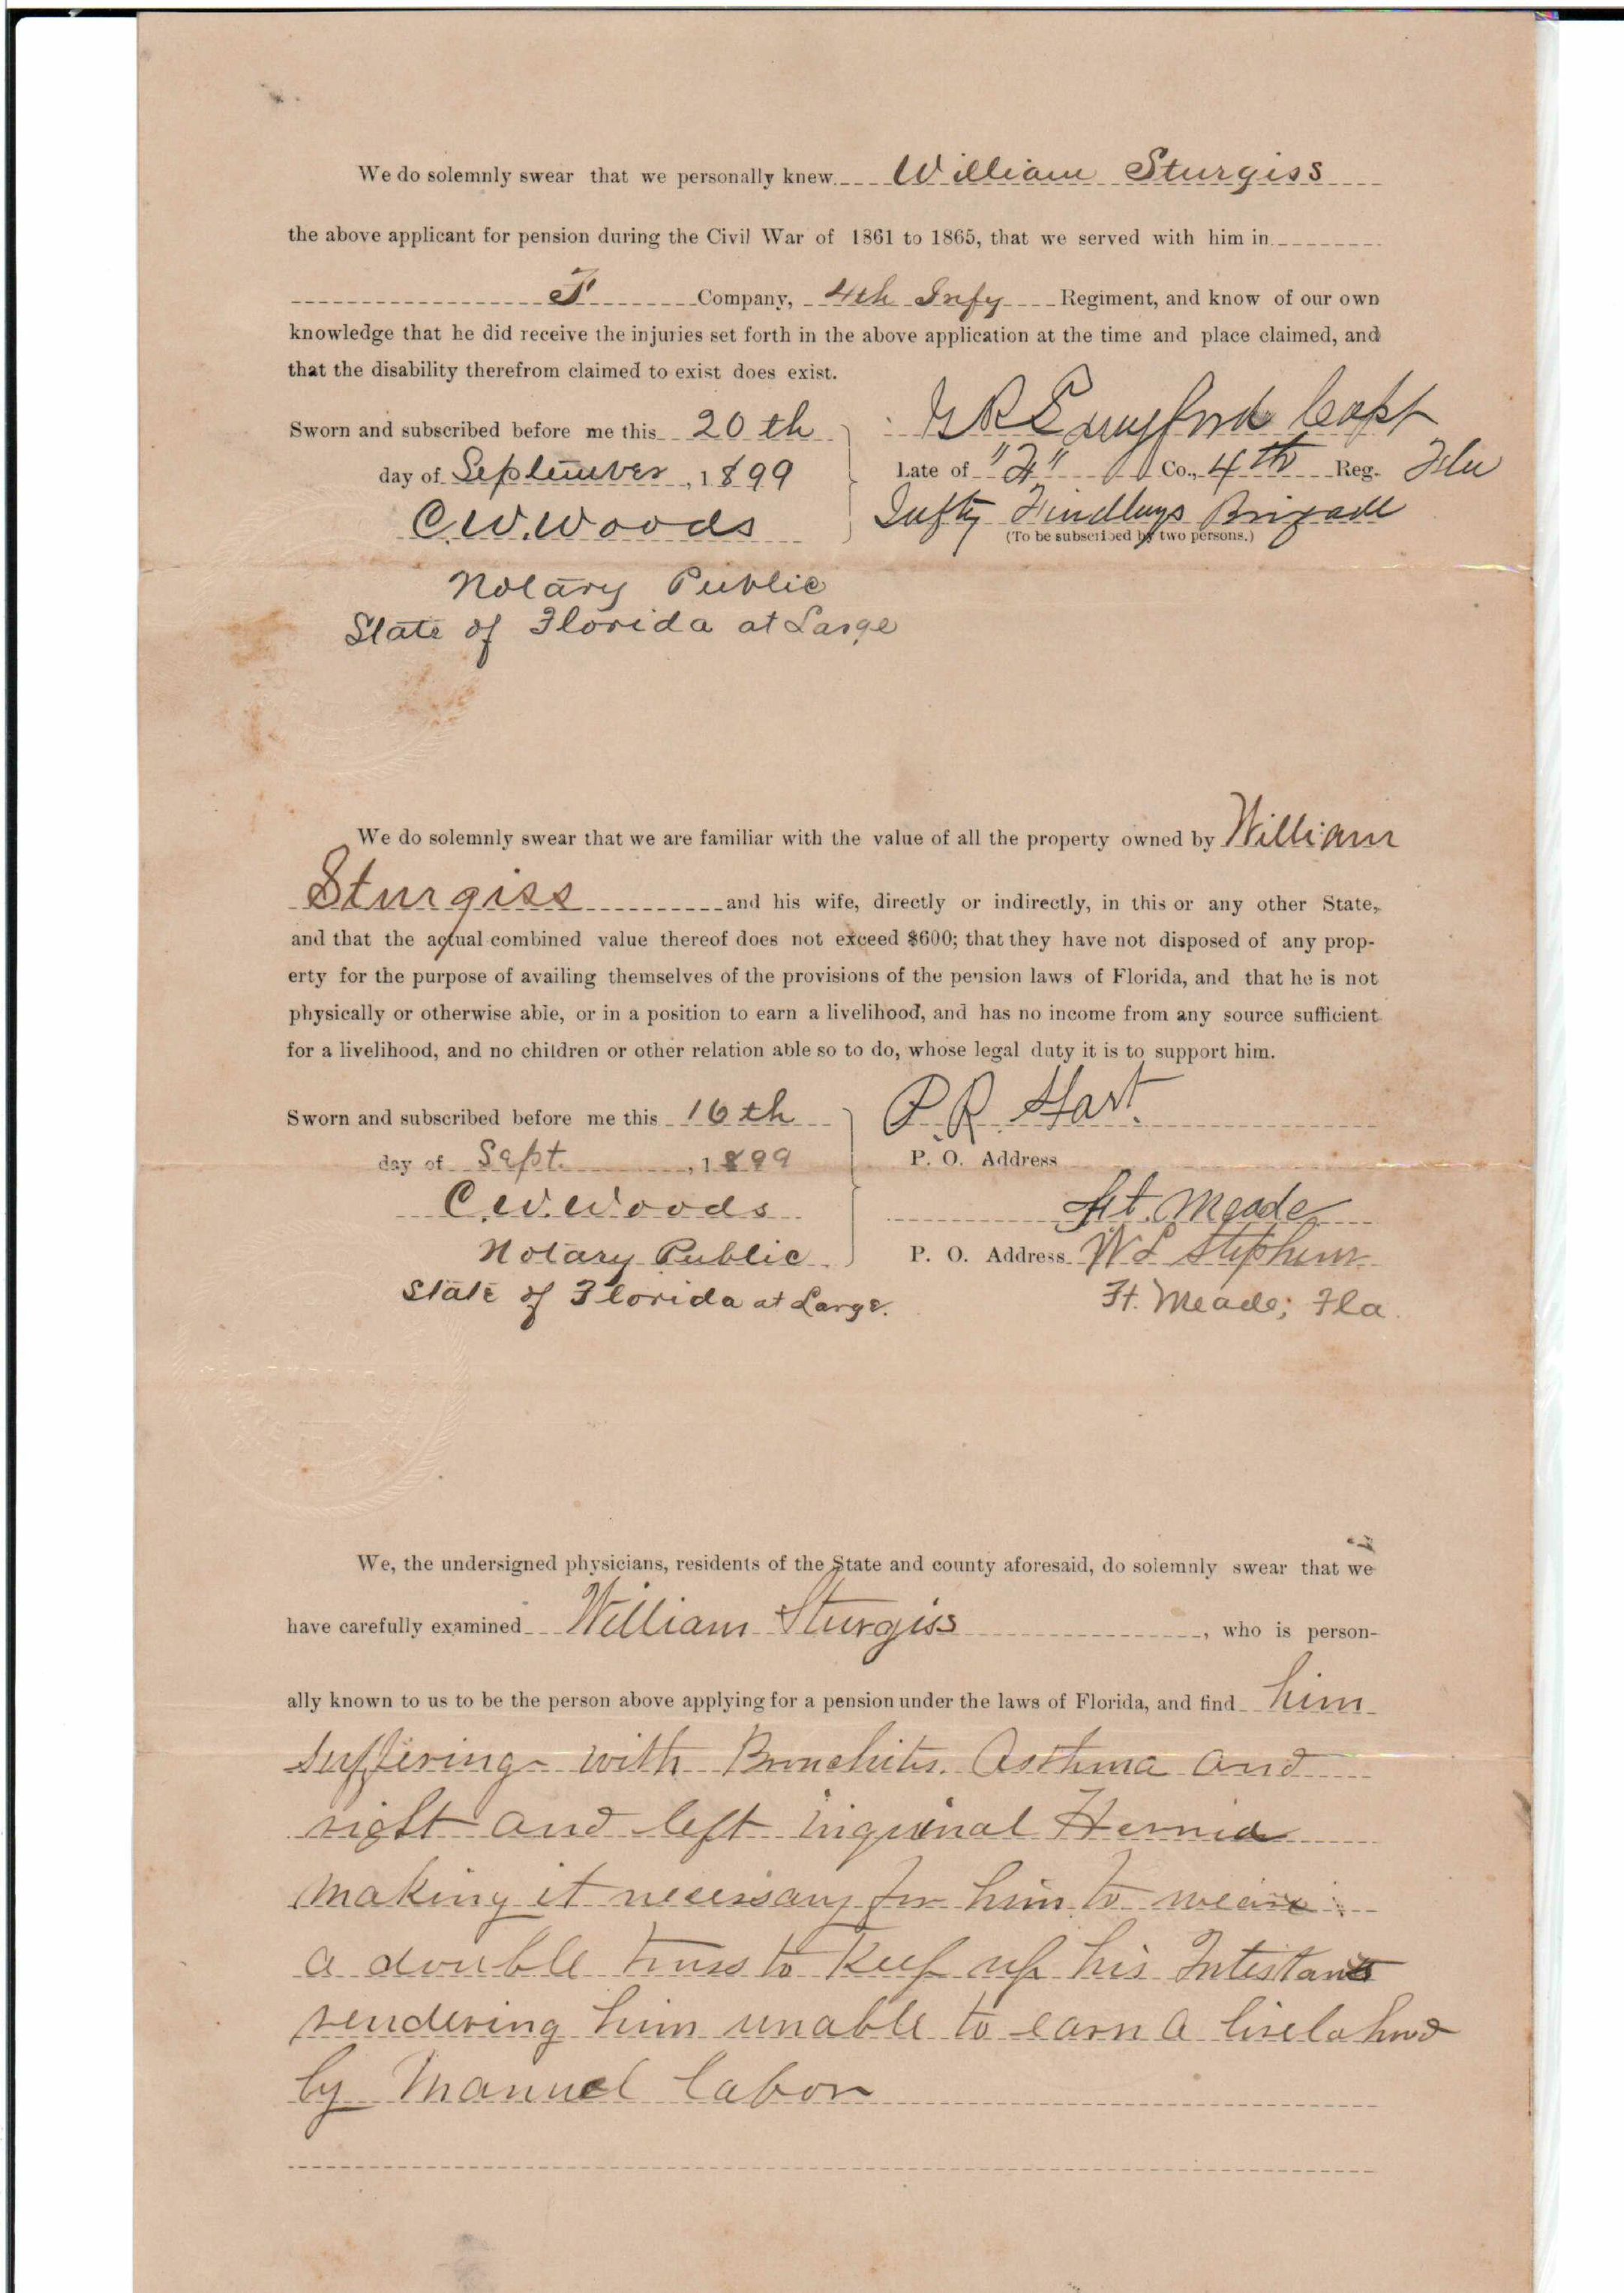 We do solemnly swear that we personally knew William Sturgiss
the above applicant for pension during the Civil War of 1861 to 1865, that we served with him in
F Company, 4th Infy Regiment, and know of our own
knowledge that he did receive the injuries set forth in the above application at the time and place claimed, and
that the disability therefrom claimed to exist does exist.
Sworn and subscribed before me this 20th
day of September, 1899
C.W. Woods
Notary Public
State of Florida at Large
Capt
Late of "F" Co., 4th Reg. Fla
Infty Findlays Brigade
(To be subscribed by two persons.)
We do solemnly swear that we are familiar with the value of all the property owned by William
Sturgiss and his wife, directly or indirectly, in this or any other State,
and that the actual combined value thereof does not exceed $600; that they have not disposed of any prop-
erty for the purpose of availing themselves of the provisions of the pension laws of Florida, and that he is not
physically or otherwise able, or in a position to earn a livelihood, and has no income from any source sufficient
for a livelihood, and no children or other relation able so to do, whose legal duty it is to support him.
Sworn and subscribed before me this 16th
day of Sept. , 1899
C.W. Woods
Notary Public
State of Florida at Large.
P.R. Hart.
P. O. Address
Ft. Meade
P. O. Address W L Stephens
Ft. Meade; Fla.
We, the undersigned physicians, residents of the State and county aforesaid, do solemnly swear that we
have carefully examined William Sturgiss , who is person-
ally known to us to be the person above applying for a pension under the laws of Florida, and find him
suffering with Bronchitis. Asthma and
right and left inguinal Hernia
making it necessary for him to wear
a double truss to Keep up his
rendering him unable to earn a livelahood
by Manuel labor